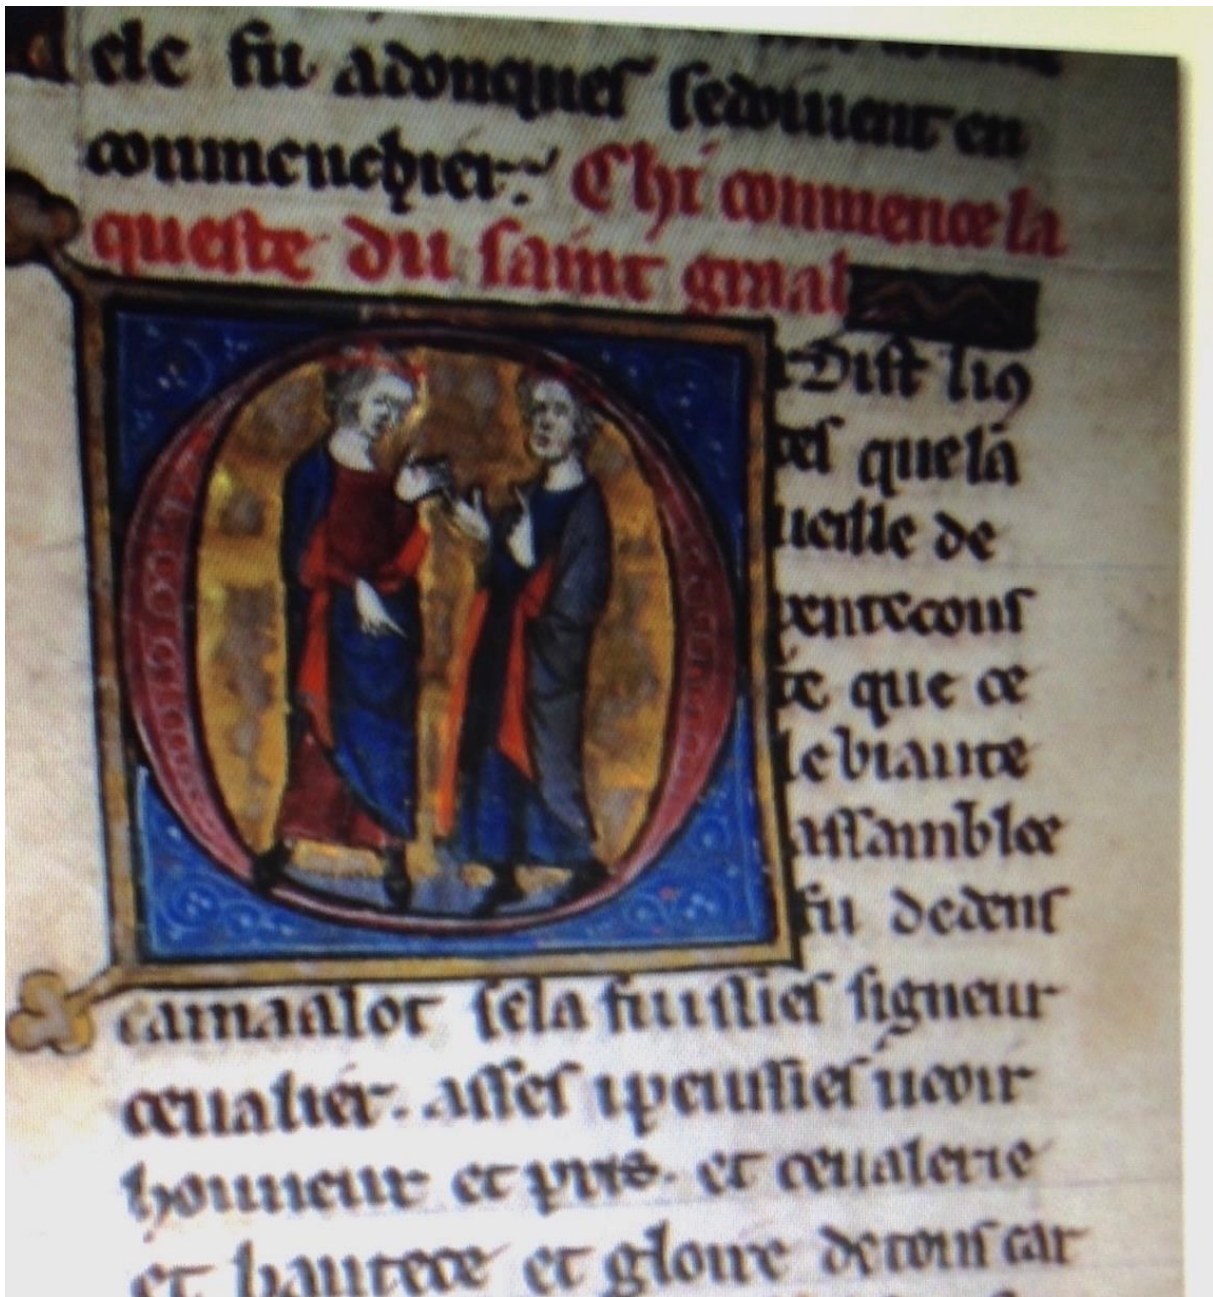 ele fu adonques se doiuent en
conmenchier. Chi conmence la
queste du saint graal
Dist li9
que la
ueille de
pentecous
te que ce
le biaute
assamblee
fu dedens
camaalot se la fuissies signeur
ceualier. asses i peuissies ueoir
honneur et pris. et ceualerie
et hautece et gloire de tous car